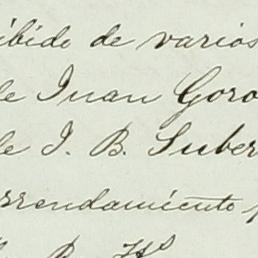 ibido de varios
de Juan Goro
de J. B. Suber
rrendamiento p
B. Hs